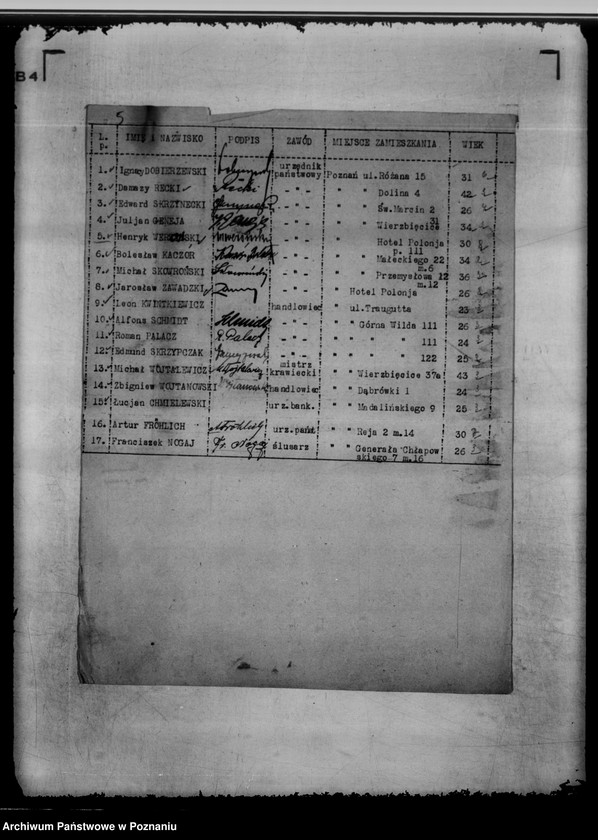 B4
5
L. p. IMIĘ i NAZWISKO PODPIS ZAWÓD MIEJSCE ZAMIESZKANIA WIEK
1. Ignacy DOBIERZEWSKI urzędnik państwowy Poznań ul. Różana 15 31
2. Damazy RECKI Recki - " - " " Dolina 4 42
3. Edward SKRZYNECKI - " - " " Św. Marcin 2 26
4. Juljan GENEJA - " - " " Wierzbięcice 31 34
5. Henryk - " - " Hotel Polonja p. 111 30
6. Bolesław KACZOR - " - " " Małeckiego 22 m.6 34
7. Michał SKOWROŃSKI - " - " " Przemysłowa 12 m.12 36
8. Jarosław ZAWADZKI - " - Hotel Polonja 26
9. Leon KWINTKIEWICZ handlowiec " ul. Traugutta 23
10. Alfons SCHMIDT Schmidt - " - " " Górna Wilda 111 26
11. Roman PALACZ R. Palacz - " - " " " 111 24
12. Edmund SKRZYPCZAK - " - " " " 122 25
13. Michał WOJTALEWICZ mistrz krawiecki " " Wierzbięcice 37a 43
14. Zbigniew WOJTANOWSKI handlowiec " " Dąbrówki 1 24
15. Łucjan CHMIELEWSKI urz. bank. " " Madalińskiego 9 25
16. Artur FRÖHLICH urz. państ " " Reja 2 m.14 30
17. Franciszek NOGAJ Fr. Nogaj ślusarz " " Generała Chłapowskiego 7 m.16 26
Archiwum Państwowe w Poznaniu